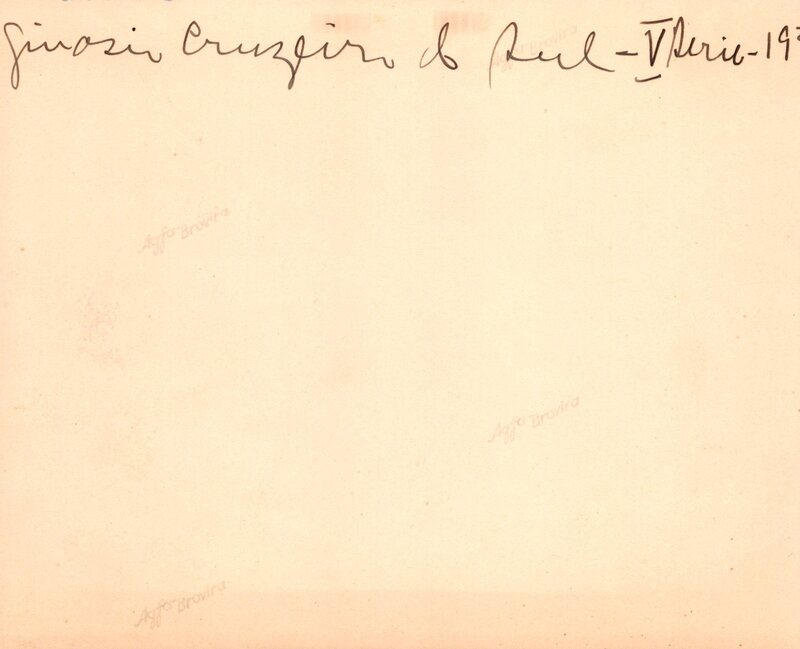 Ginasio Cruzeiro do Sul - V Serie - 193
Agfa Brovira
Agfa Brovira
Agfa Brovira
Agfa Brovira